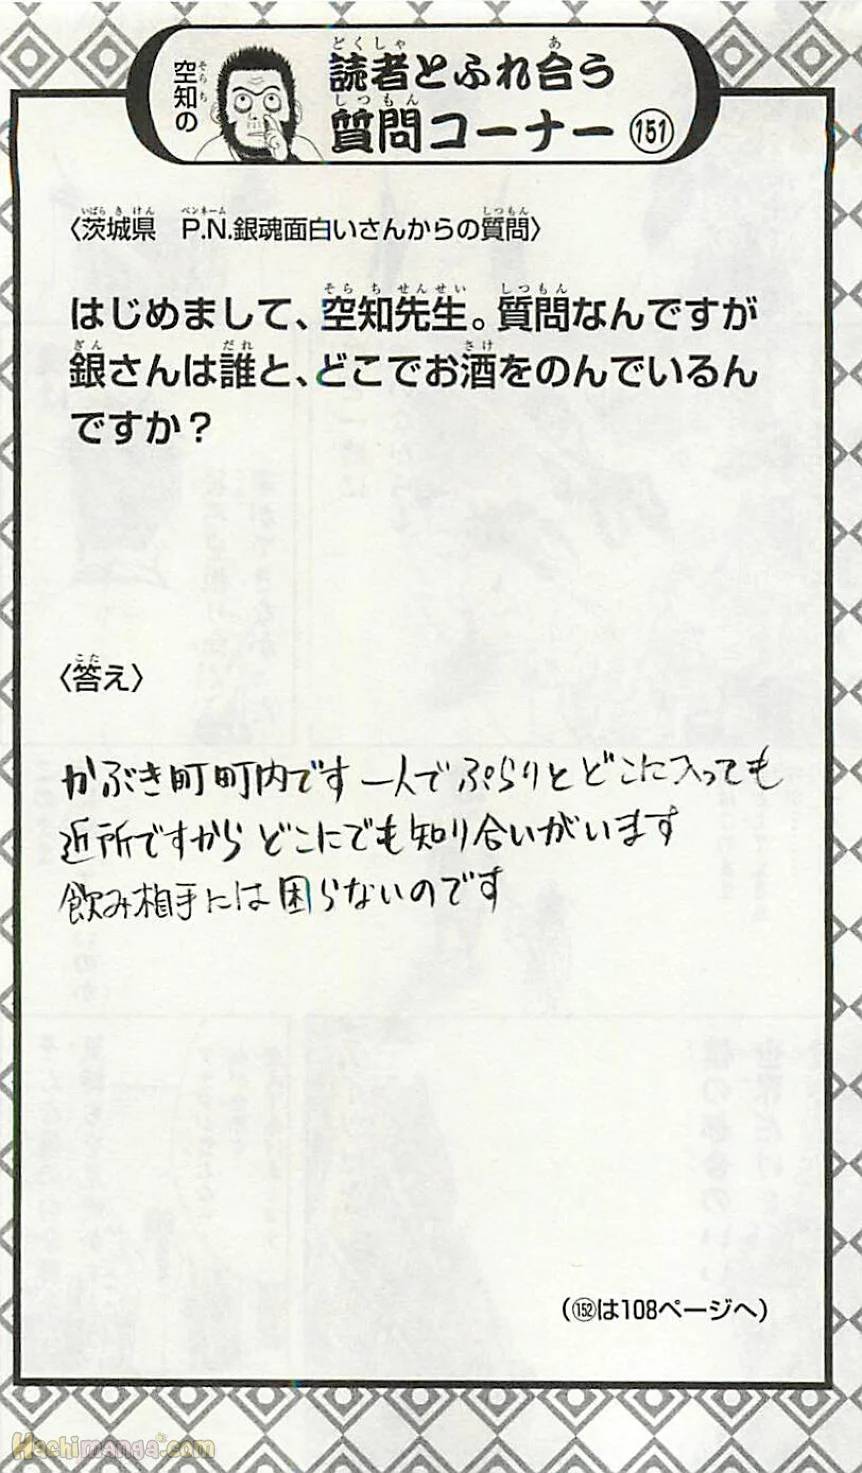 空知の
読者とふれ合う
質問コーナー 151
〈茨城県　P.N.銀魂面白いさんからの質問〉
はじめまして、空知先生。質問なんですが
銀さんは誰と、どこでお酒をのんでいるん
ですか？
〈答え〉
かぶき町町内です 一人でぷらりとどこに入っても
近所ですから どこにでも知り合いがいます
飲み相手には困らないのです
（152は108ページへ）
Hachimanga.com